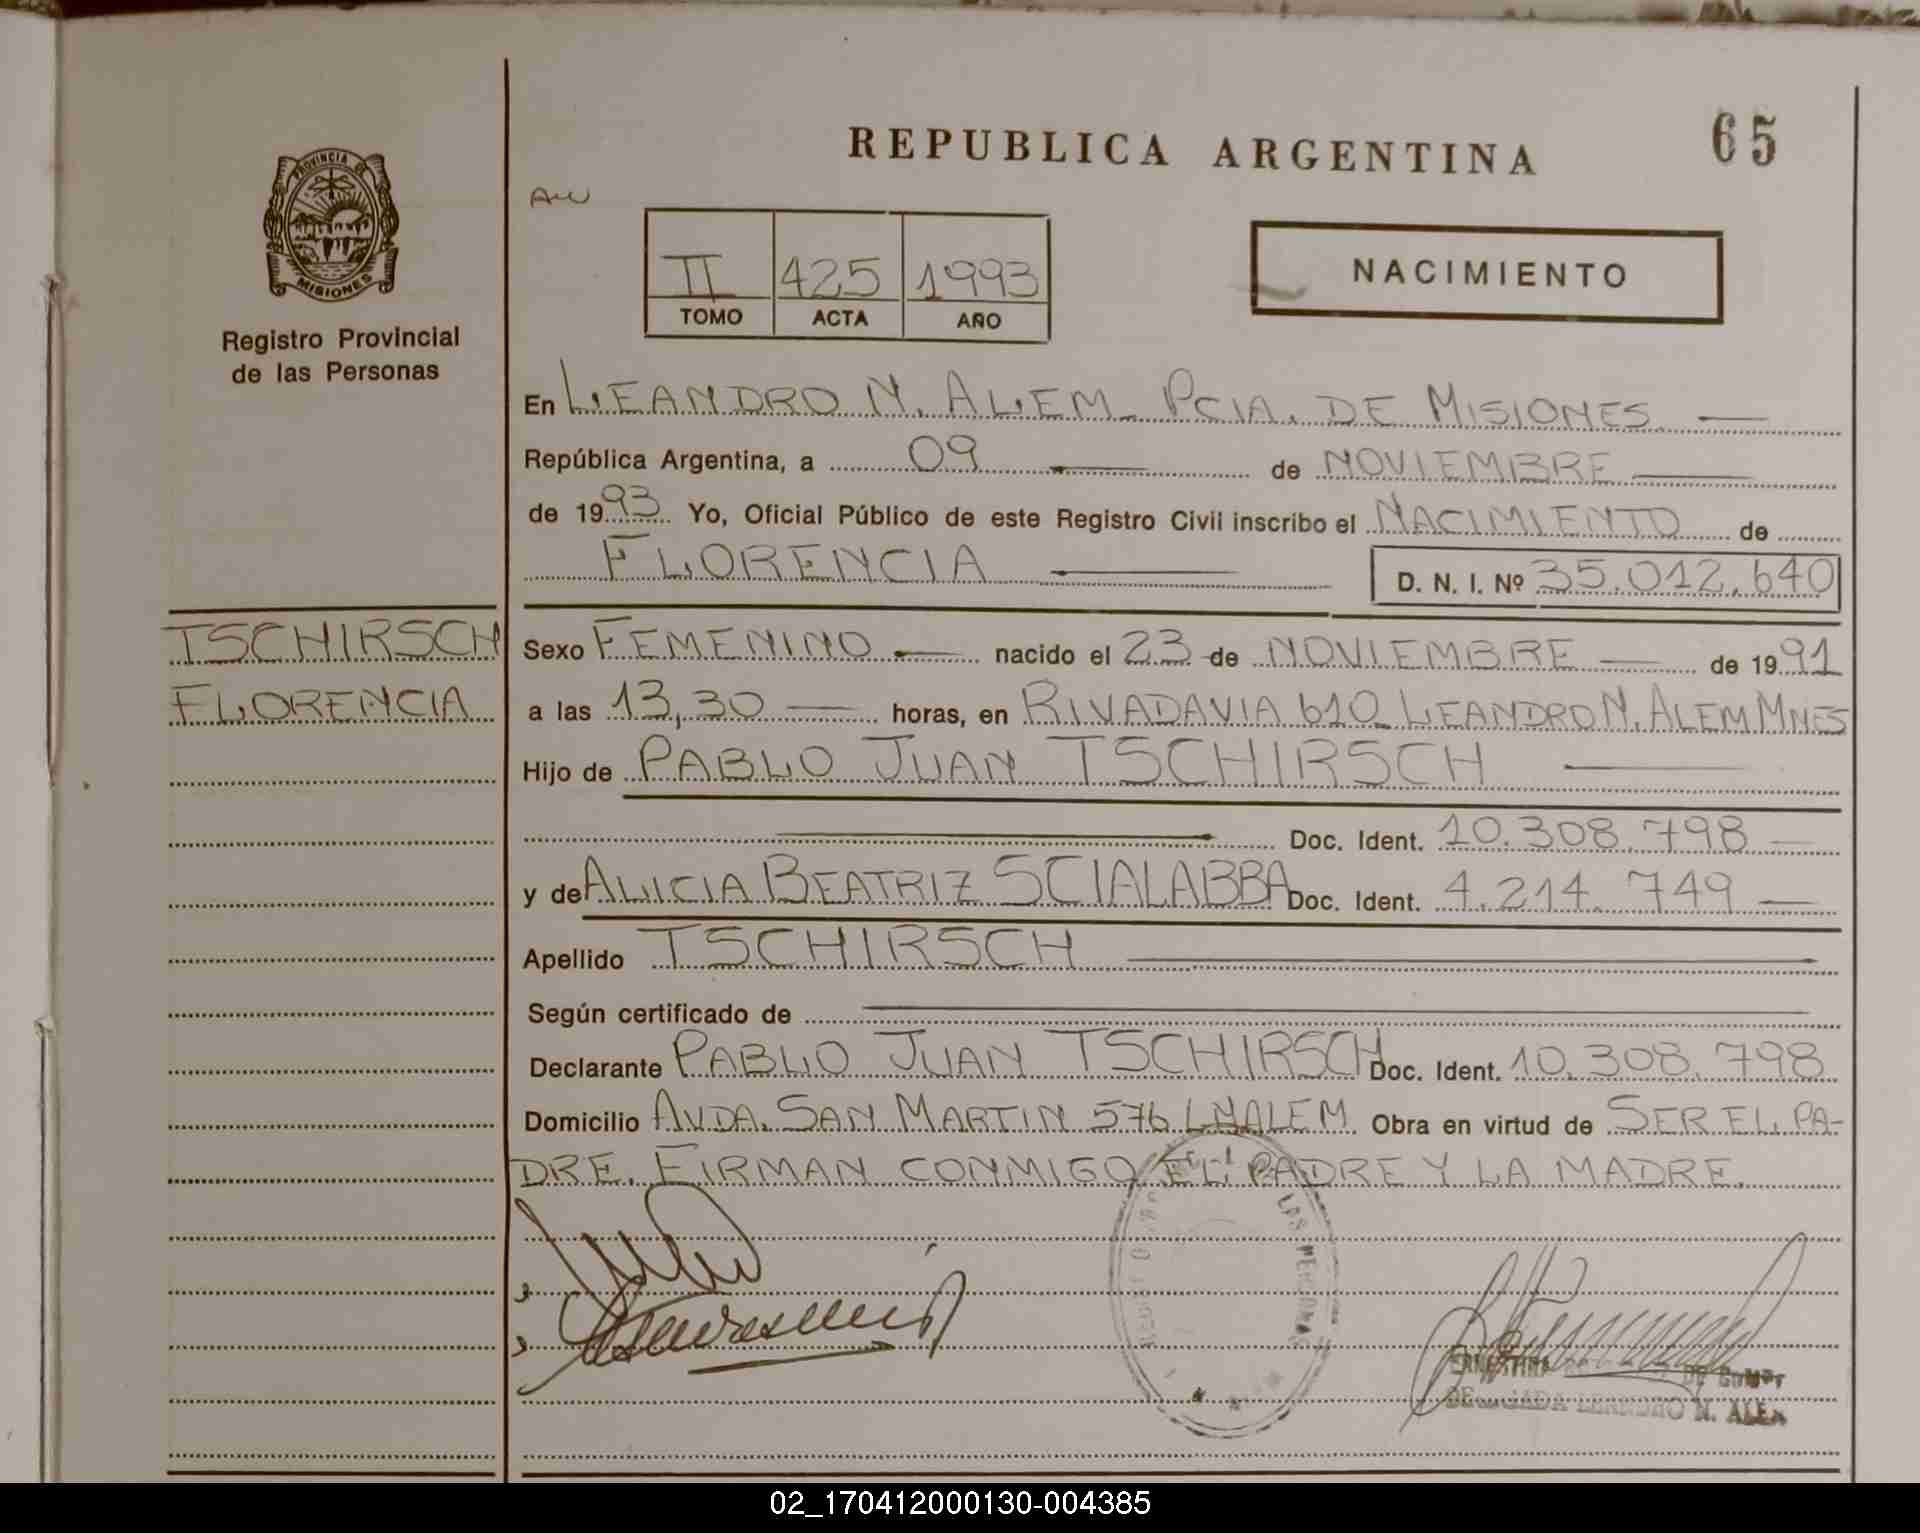 REPUBLICA ARGENTINA
65
PROVINCIA DE
MISIONES
Registro Provincial
de las Personas
II 425 1993
TOMO ACTA AÑO
NACIMIENTO
En LEANDRO N. ALEM - PCIA. DE MISIONES
República Argentina, a 09 de NOVIEMBRE
de 1993 Yo, Oficial Público de este Registro Civil inscribo el NACIMIENTO de
FLORENCIA D. N. I. Nº 35.012.640
TSCHIRSCH
FLORENCIA
Sexo FEMENINO nacido el 23 de NOVIEMBRE de 1991
a las 13,30 horas, en RIVADAVIA 610 - LEANDRO N. ALEM MNES
Hijo de PABLO JUAN TSCHIRSCH
Doc. Ident. 10.308.798
y de ALICIA BEATRIZ SCIALABBA Doc. Ident. 4.214.749
Apellido TSCHIRSCH
Según certificado de
Declarante PABLO JUAN TSCHIRSCH Doc. Ident. 10.308.798
Domicilio AVDA. SAN MARTIN 576 L.N.ALEM. Obra en virtud de SER EL PA-
DRE. FIRMAN CONMIGO EL PADRE Y LA MADRE.
LAS PERSONAS
DE
DELEGADA LEANDRO N. ALEM
02_170412000130-004385